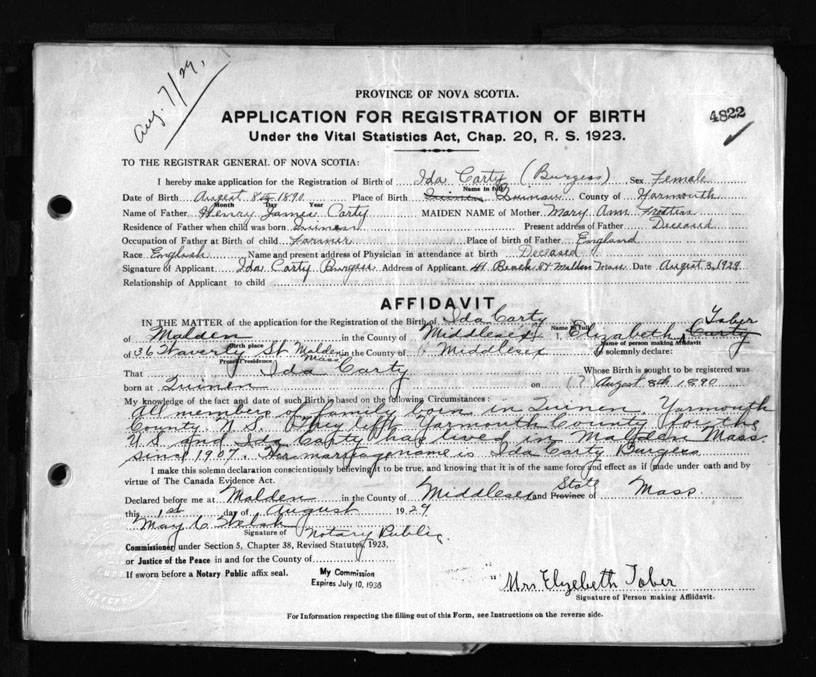 Aug. 7/29.
PROVINCE OF NOVA SCOTIA.
APPLICATION FOR REGISTRATION OF BIRTH
4822
Under the Vital Statistics Act, Chap. 20, R. S. 1923.
TO THE REGISTRAR GENERAL OF NOVA SCOTIA:
I hereby make application for the Registration of Birth of Ida Carty (Burgess) Sex Female
Name in full
Date of Birth August 8th 1890 Place of Birth Quinan County of Yarmouth
Month Day Year
Name of Father Henry James Carty MAIDEN NAME of Mother Mary Ann
Residence of Father when child was born Quinan Present address of Father Deceased
Occupation of Father at Birth of child Farmer Place of birth of Father England
Race English Name and present address of Physician in attendance at birth Deceased
Signature of Applicant Ida Carty Burgess Address of Applicant 41 Beach St Malden Mass Date August 3, 1929
Relationship of Applicant to child
AFFIDAVIT
IN THE MATTER of the application for the Registration of the Birth of Ida Carty
Name in full
Tober
of Malden in the County of Middlesex I, Elizabeth Carty
Birth place Name of person making Affidavit
of 36 Waverly St Malden Mass in the County of Middlesex do solemnly declare:
Present Residence
That Ida Carty Whose Birth is sought to be registered was
born at Quinen on August 8th 1890
My knowledge of the fact and date of such Birth is based on the following Circumstances:
All members of family born in Quinen, Yarmouth
County. N.S. They left Yarmouth County for the
U.S. and Ida Carty has lived in Malden Mass.
since 1907. Her marriage name is Ida Carty Burgess
I make this solemn declaration conscientiously believing it to be true, and knowing that it is of the same force and effect as if made under oath and by
virtue of The Canada Evidence Act.
Declared before me at Malden in the County of Middlesex and Province of State Mass.
this 1st day of August 1929
May C. Welsh
Signature of Notary Public
Commissioner, under Section 5, Chapter 38, Revised Statutes, 1923,
or Justice of the Peace in and for the County of
If sworn before a Notary Public affix seal.
My Commission
Expires July 10, 1936
Mrs Elyzebeth Tober
Signature of Person making Affidavit.
For Information respecting the filling out of this Form, see Instructions on the reverse side.